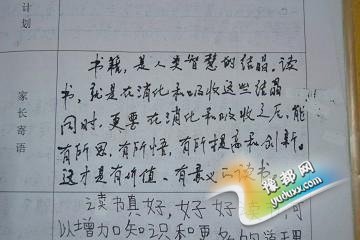 计划
家长寄语
书籍，是人类智慧的结晶。读
书，就是在消化和吸收这些结晶
同时，更要在消化和吸收之后，能
有所思，有所悟，有所提高和创新。
这才是有价值、有意义的读书。
读书真好，好好读
以增加知识和更多的道理
搜都网
yuduxx.com